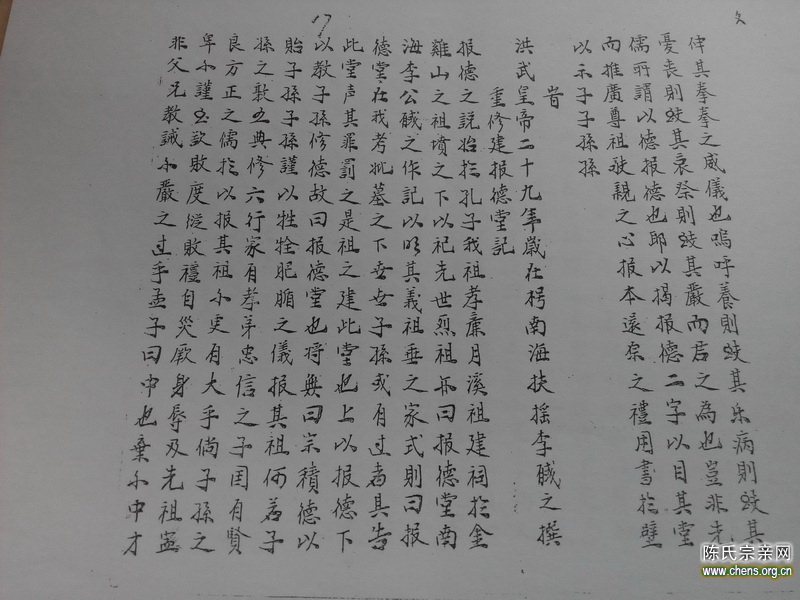 文
伸其拳拳之威儀也嗚呼養則致其乐病則致其
憂丧則致其哀祭則致其嚴而居之為也豈非先
儒所謂以德报德也耶以揭报德二字以目其堂
而推廣尊祖敬親之心报本遠宗之禮用書於壁
以示子子孫孫
旹
洪武皇帝二十九年嵗在南海扶摇李醎之撰
重修建报德堂記
报德之説始於孔子我祖孝廉月溪祖建祠於金
雞山之祖墳之下以祀先世烈祖名曰报德堂南
海李公醎之作記以明其義祖垂之家式則曰报
德堂在我考妣墓之下世世子孫或有过者具告
此堂声其罪罰之是祖之建此堂也上以报德下
以教子孫修德故曰报德堂也将無曰宗積德以
貽子孫子孫謹以牲牷肥腯之儀报其祖何若子
孫之敦五典修六行家有孝弟忠信之子囯有賢
良方正之儒於以报其祖不更有大乎倘子孫之
不謹欲敗度縱敗禮自災厥身辱及先祖寧
非父兄教誡不嚴之过乎孟子曰中也棄不中才
17
陈氏宗亲网
www.chens.org.cn